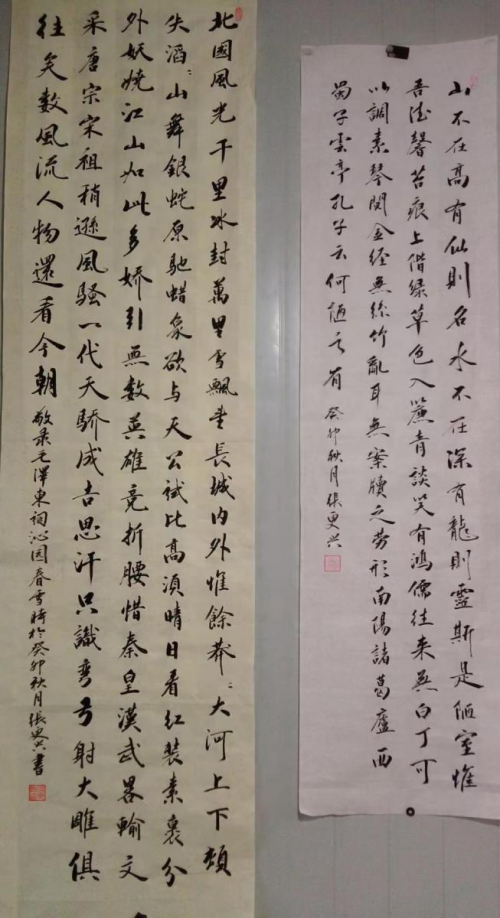 山不在高有仙則名水不在深有龍則靈斯是陋室惟
吾德馨苔痕上階綠草色入簾青談笑有鴻儒往来無白丁可
以調素琴閱金経無絲竹亂耳無案牘之勞形南陽諸葛廬西
蜀子雲亭孔子云何陋之有 癸卯秋月張更兴
北國風光千里冰封萬里雪飄望長城内外惟餘莽〻大河上下頓
失滔〻山舞銀蛇原馳蜡象欲与天公試比高湏晴日看红装素裹分
外妖嬈江山如此多娇引無数英雄竞折腰惜秦皇漢武畧輸文
采唐宗宋祖稍遜風騷一代天骄成吉思汗只識彎弓射大雕俱
往矣数風流人物還看今朝 敬录毛澤東词沁园春雪時於癸卯秋月張更兴書